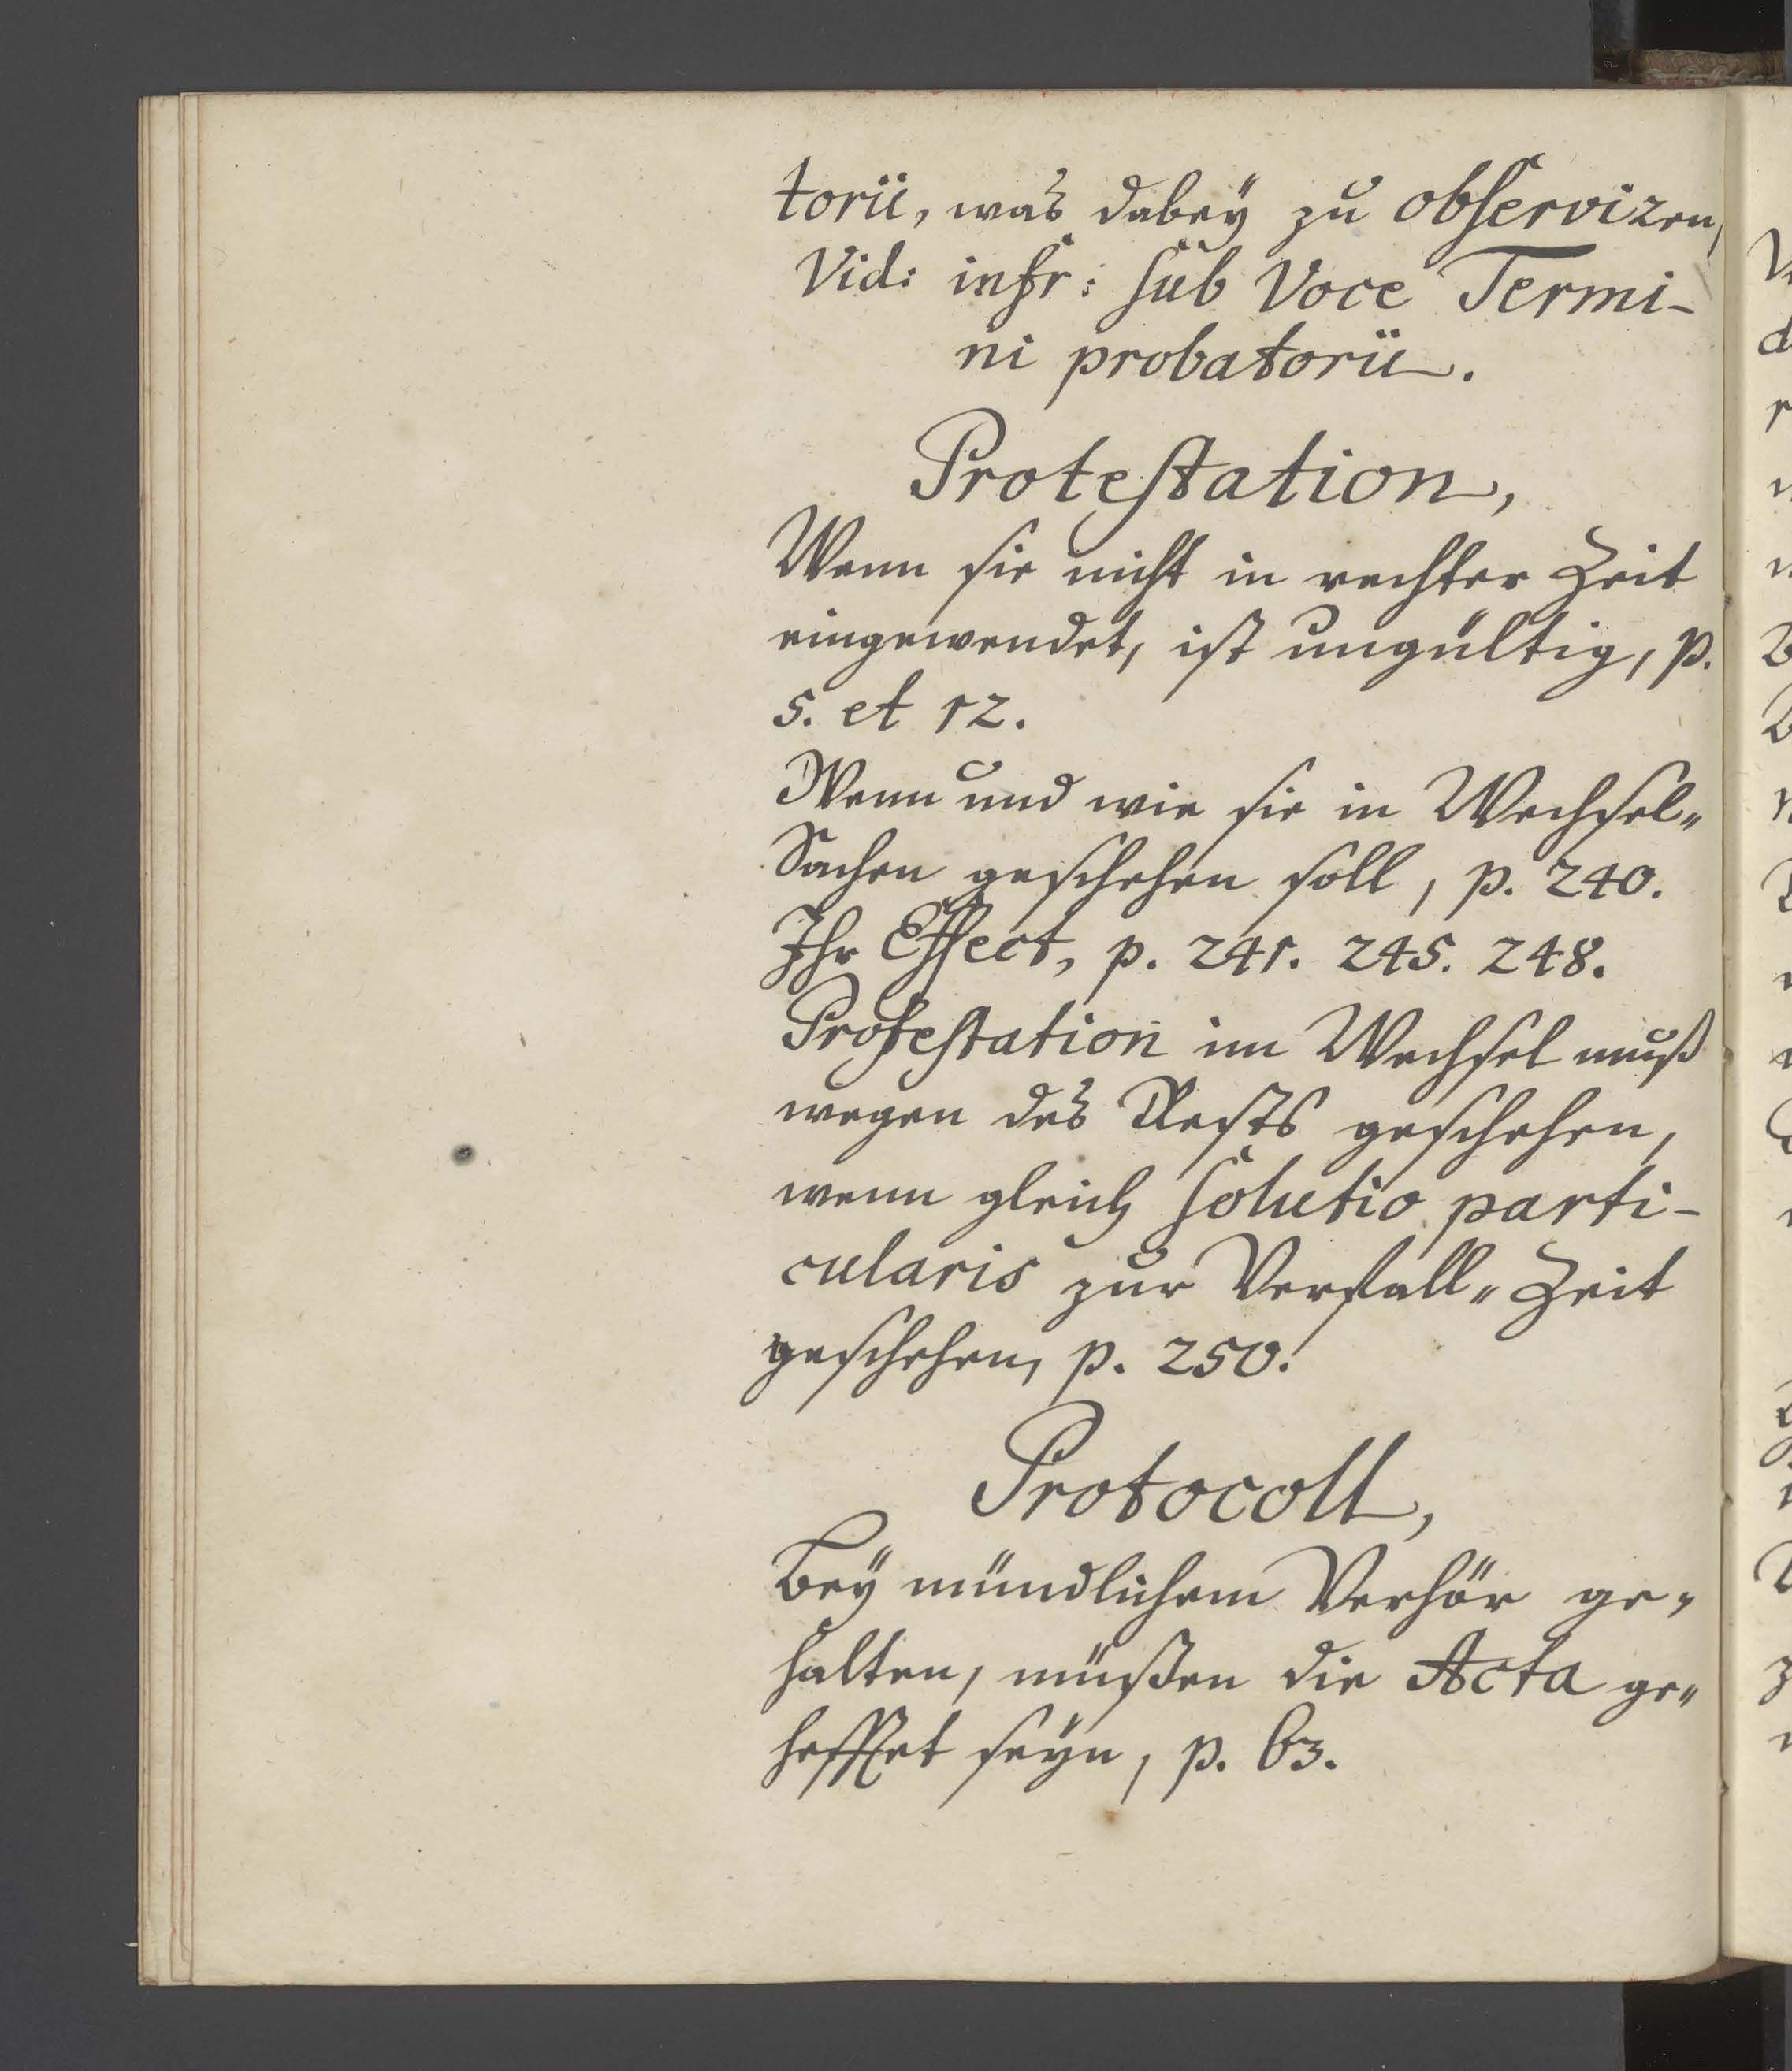 torii, was dabeÿ zu observiren,
Vid: infr: sub Voce Termi-
ni probatorii.
Protestation,
Wenn sie nicht in rechter Zeit
eingewendet, ist ungültig, p.
5. et 12.
Wenn und wie sie in Wechsel„
Sachen geschehen soll, p. 240.
Ihr Effect, p. 241. 245. 248.
Protestation im Wechsel muß
wegen des Rests geschehen,
wenn gleich solutio parti-
cularis zur Verfall„Zeit
geschehen, p. 250.
Protocoll,
Beÿ mündlichem Verhör ge„
halten, müßen die Acta ge„
hefftet seÿn, p. 63.